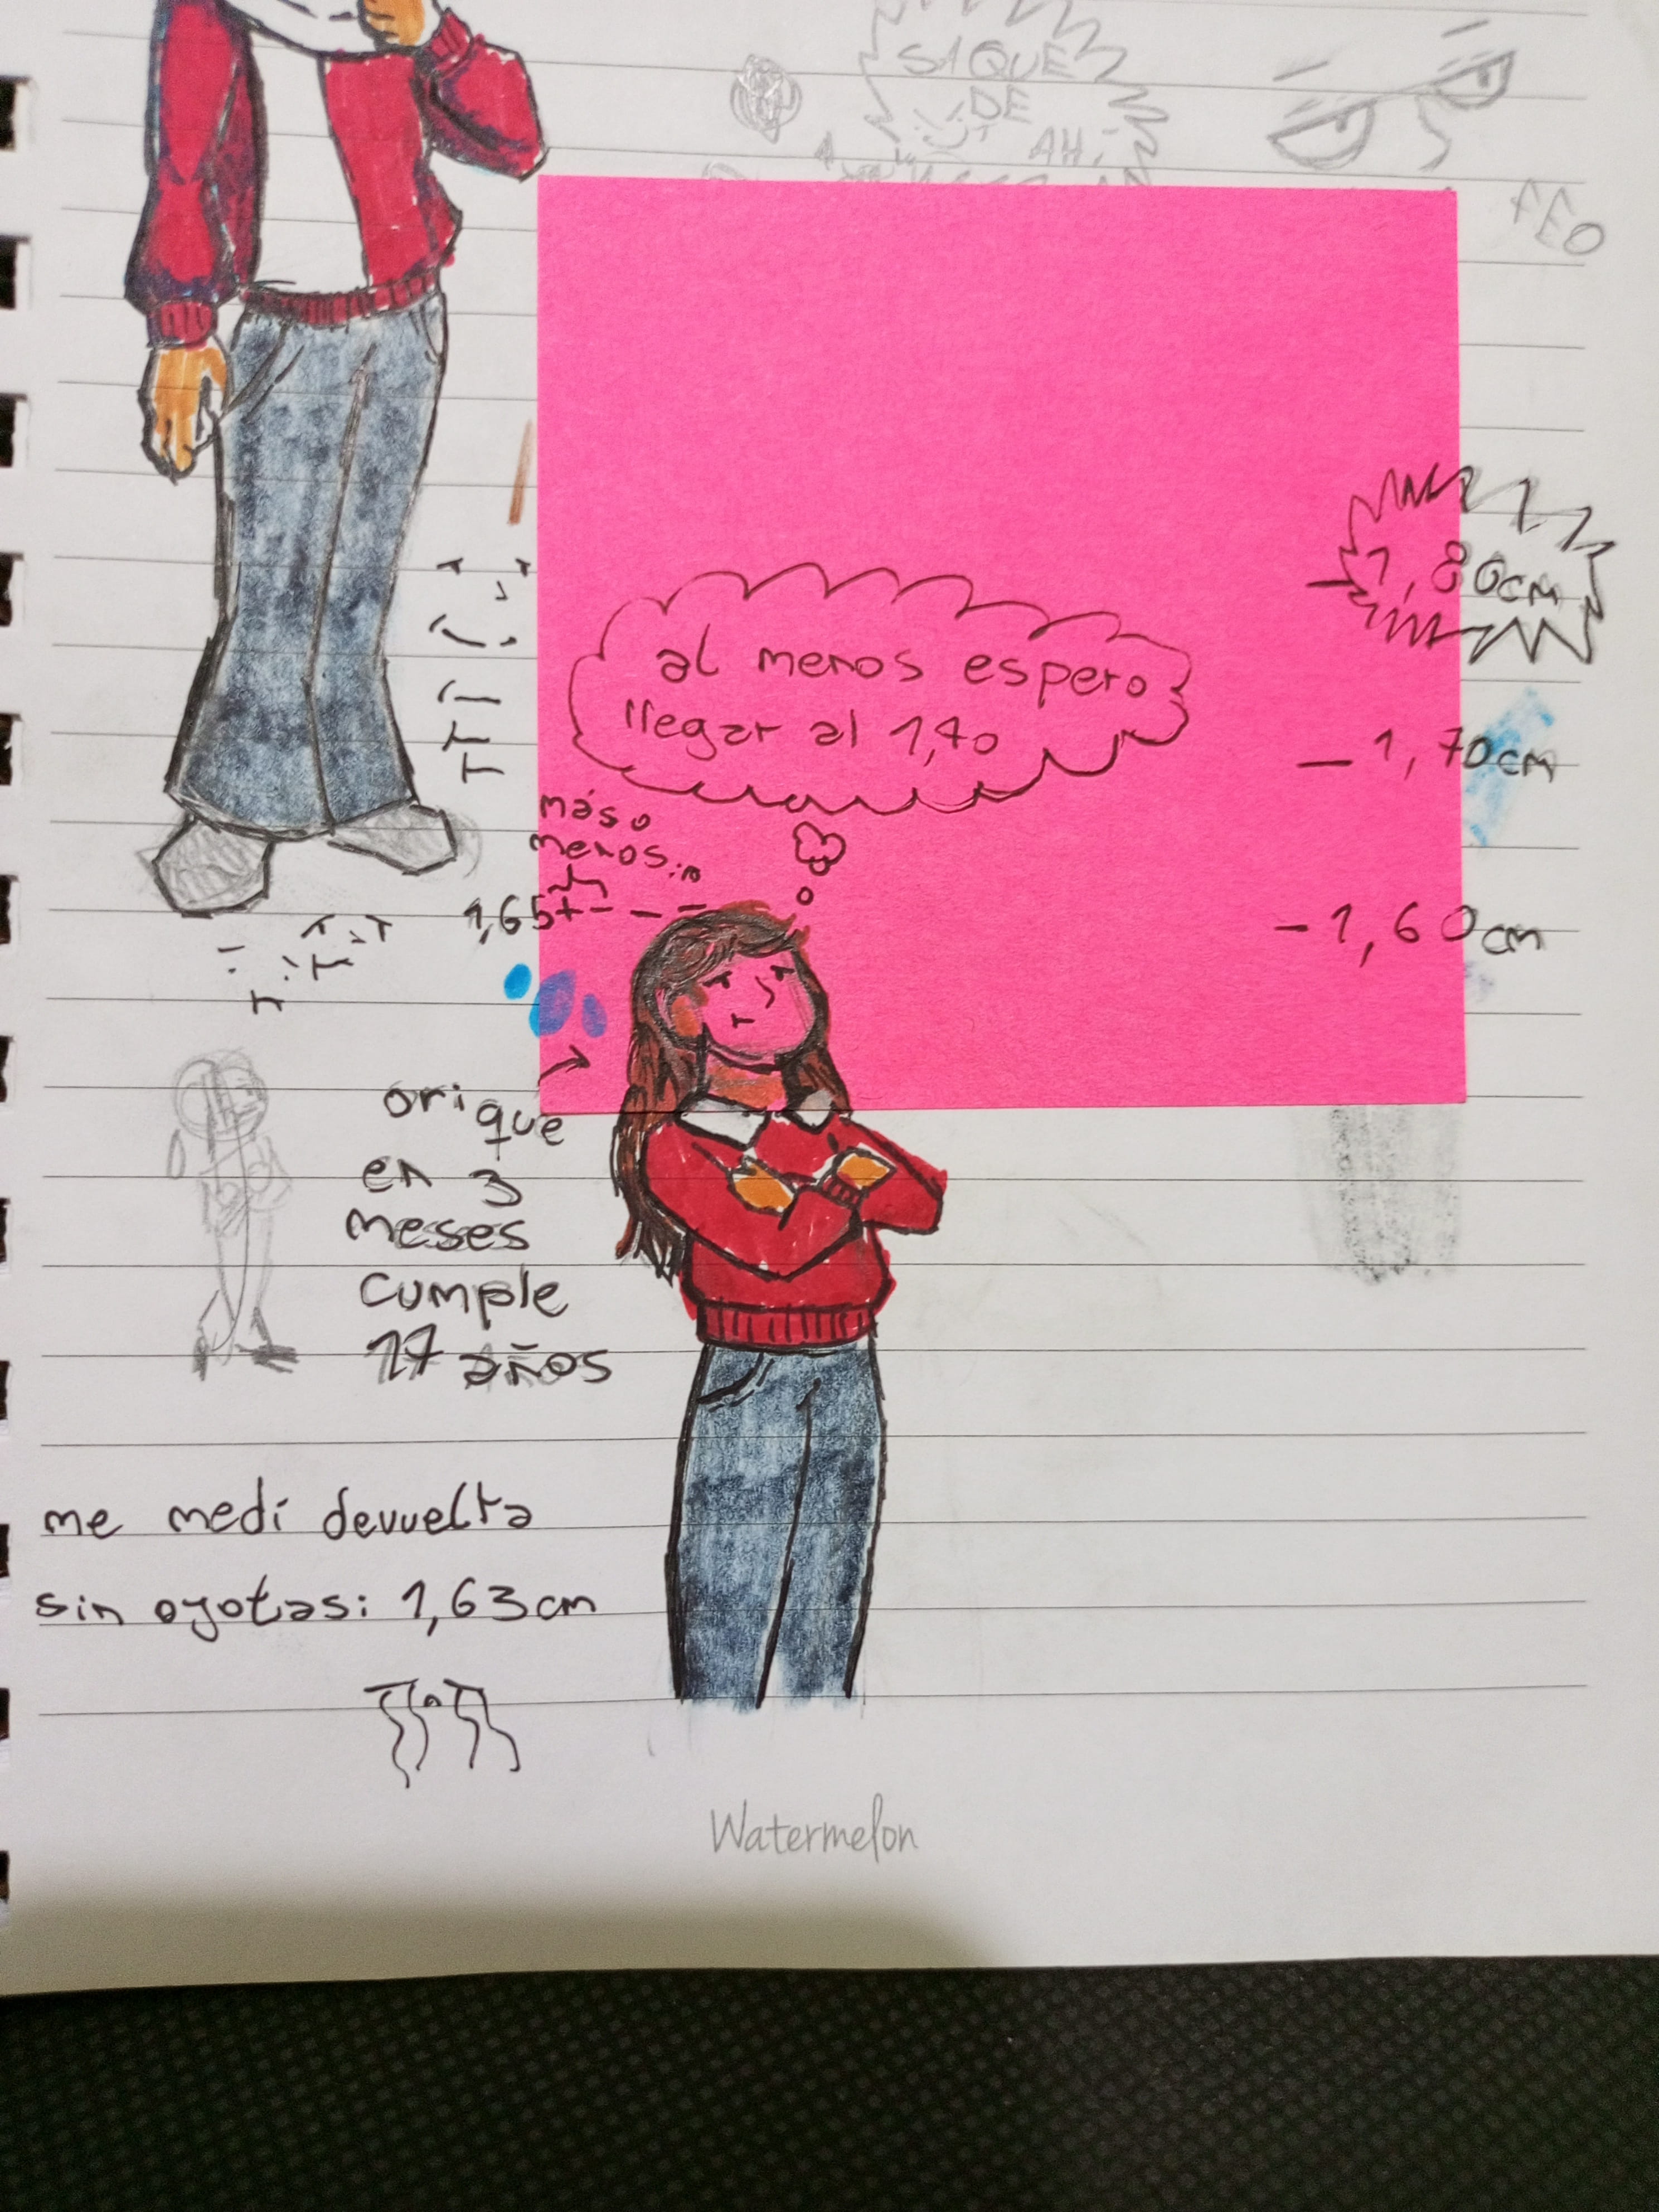 SAQUE
DE
AH!
FEO
1,80cm
al menos espero
llegar al 1,70
1,70cm
más o
menos...
1,65+
1,60cm
ori que
en 3
meses
cumple
17 años
me medí devuelta
sin ojotas: 1,63cm
Watermelon